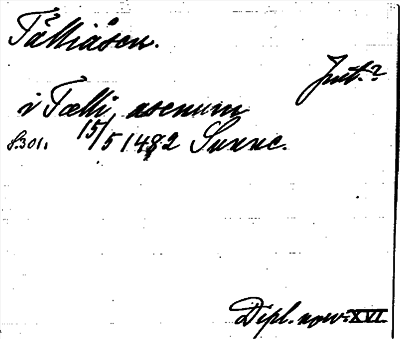 Tälliåsen.
Jnt.?
i Tælli asenum
S.301. 15/5 1482 Sunnc.
Dipl. norv. XVI.